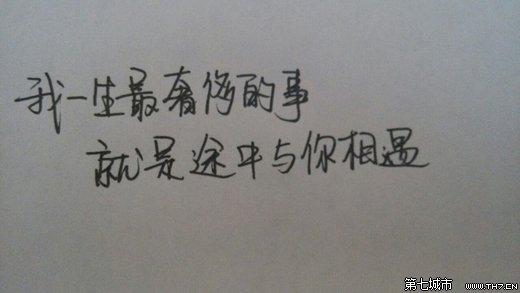 我一生最奢侈的事
就是途中与你相遇
第七城市 www.TH7.CN